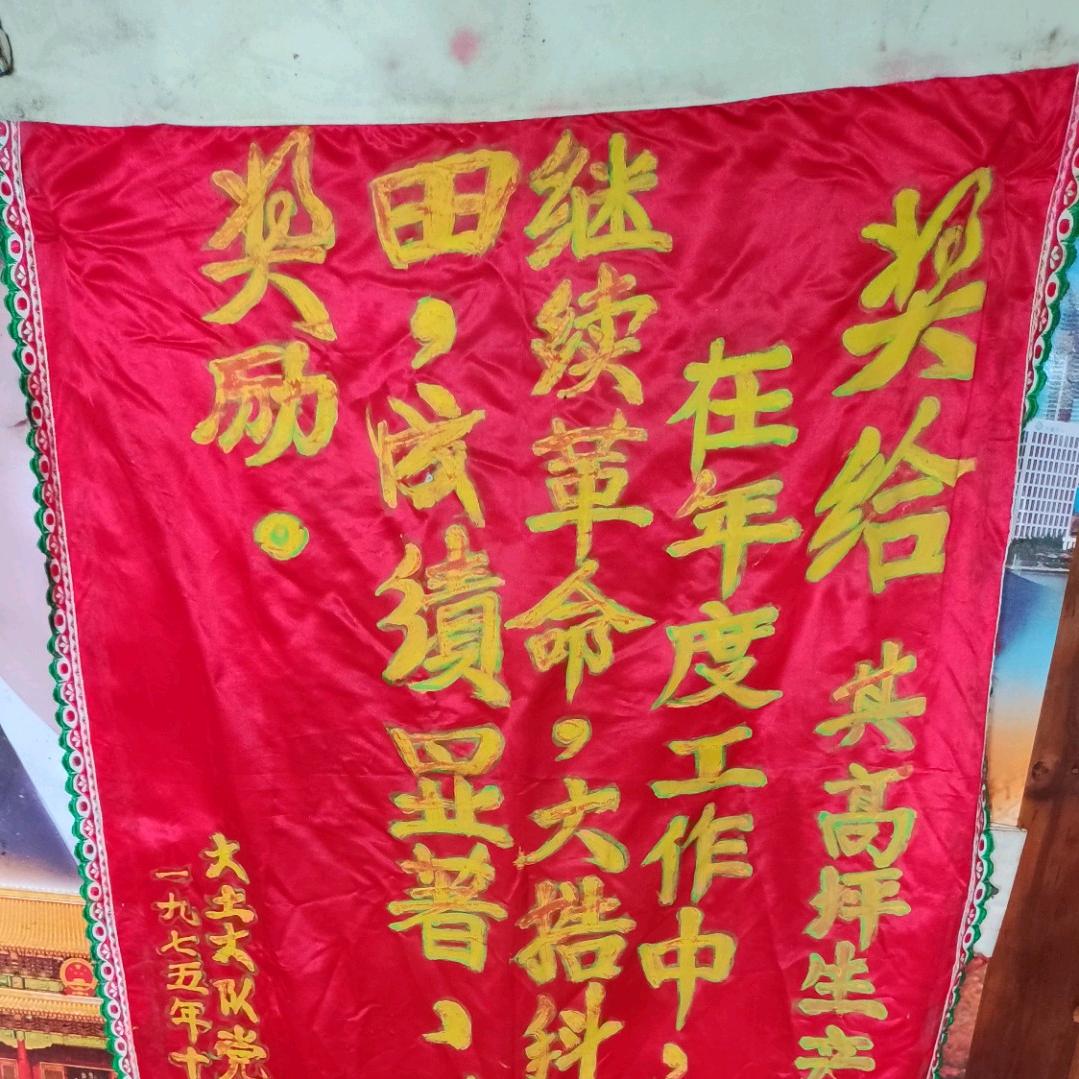 奖给 其高坪生产
在年度工作中，
继续革命，大搞科
田，成绩显著、
奖励。
大土大队党
一九七五年十